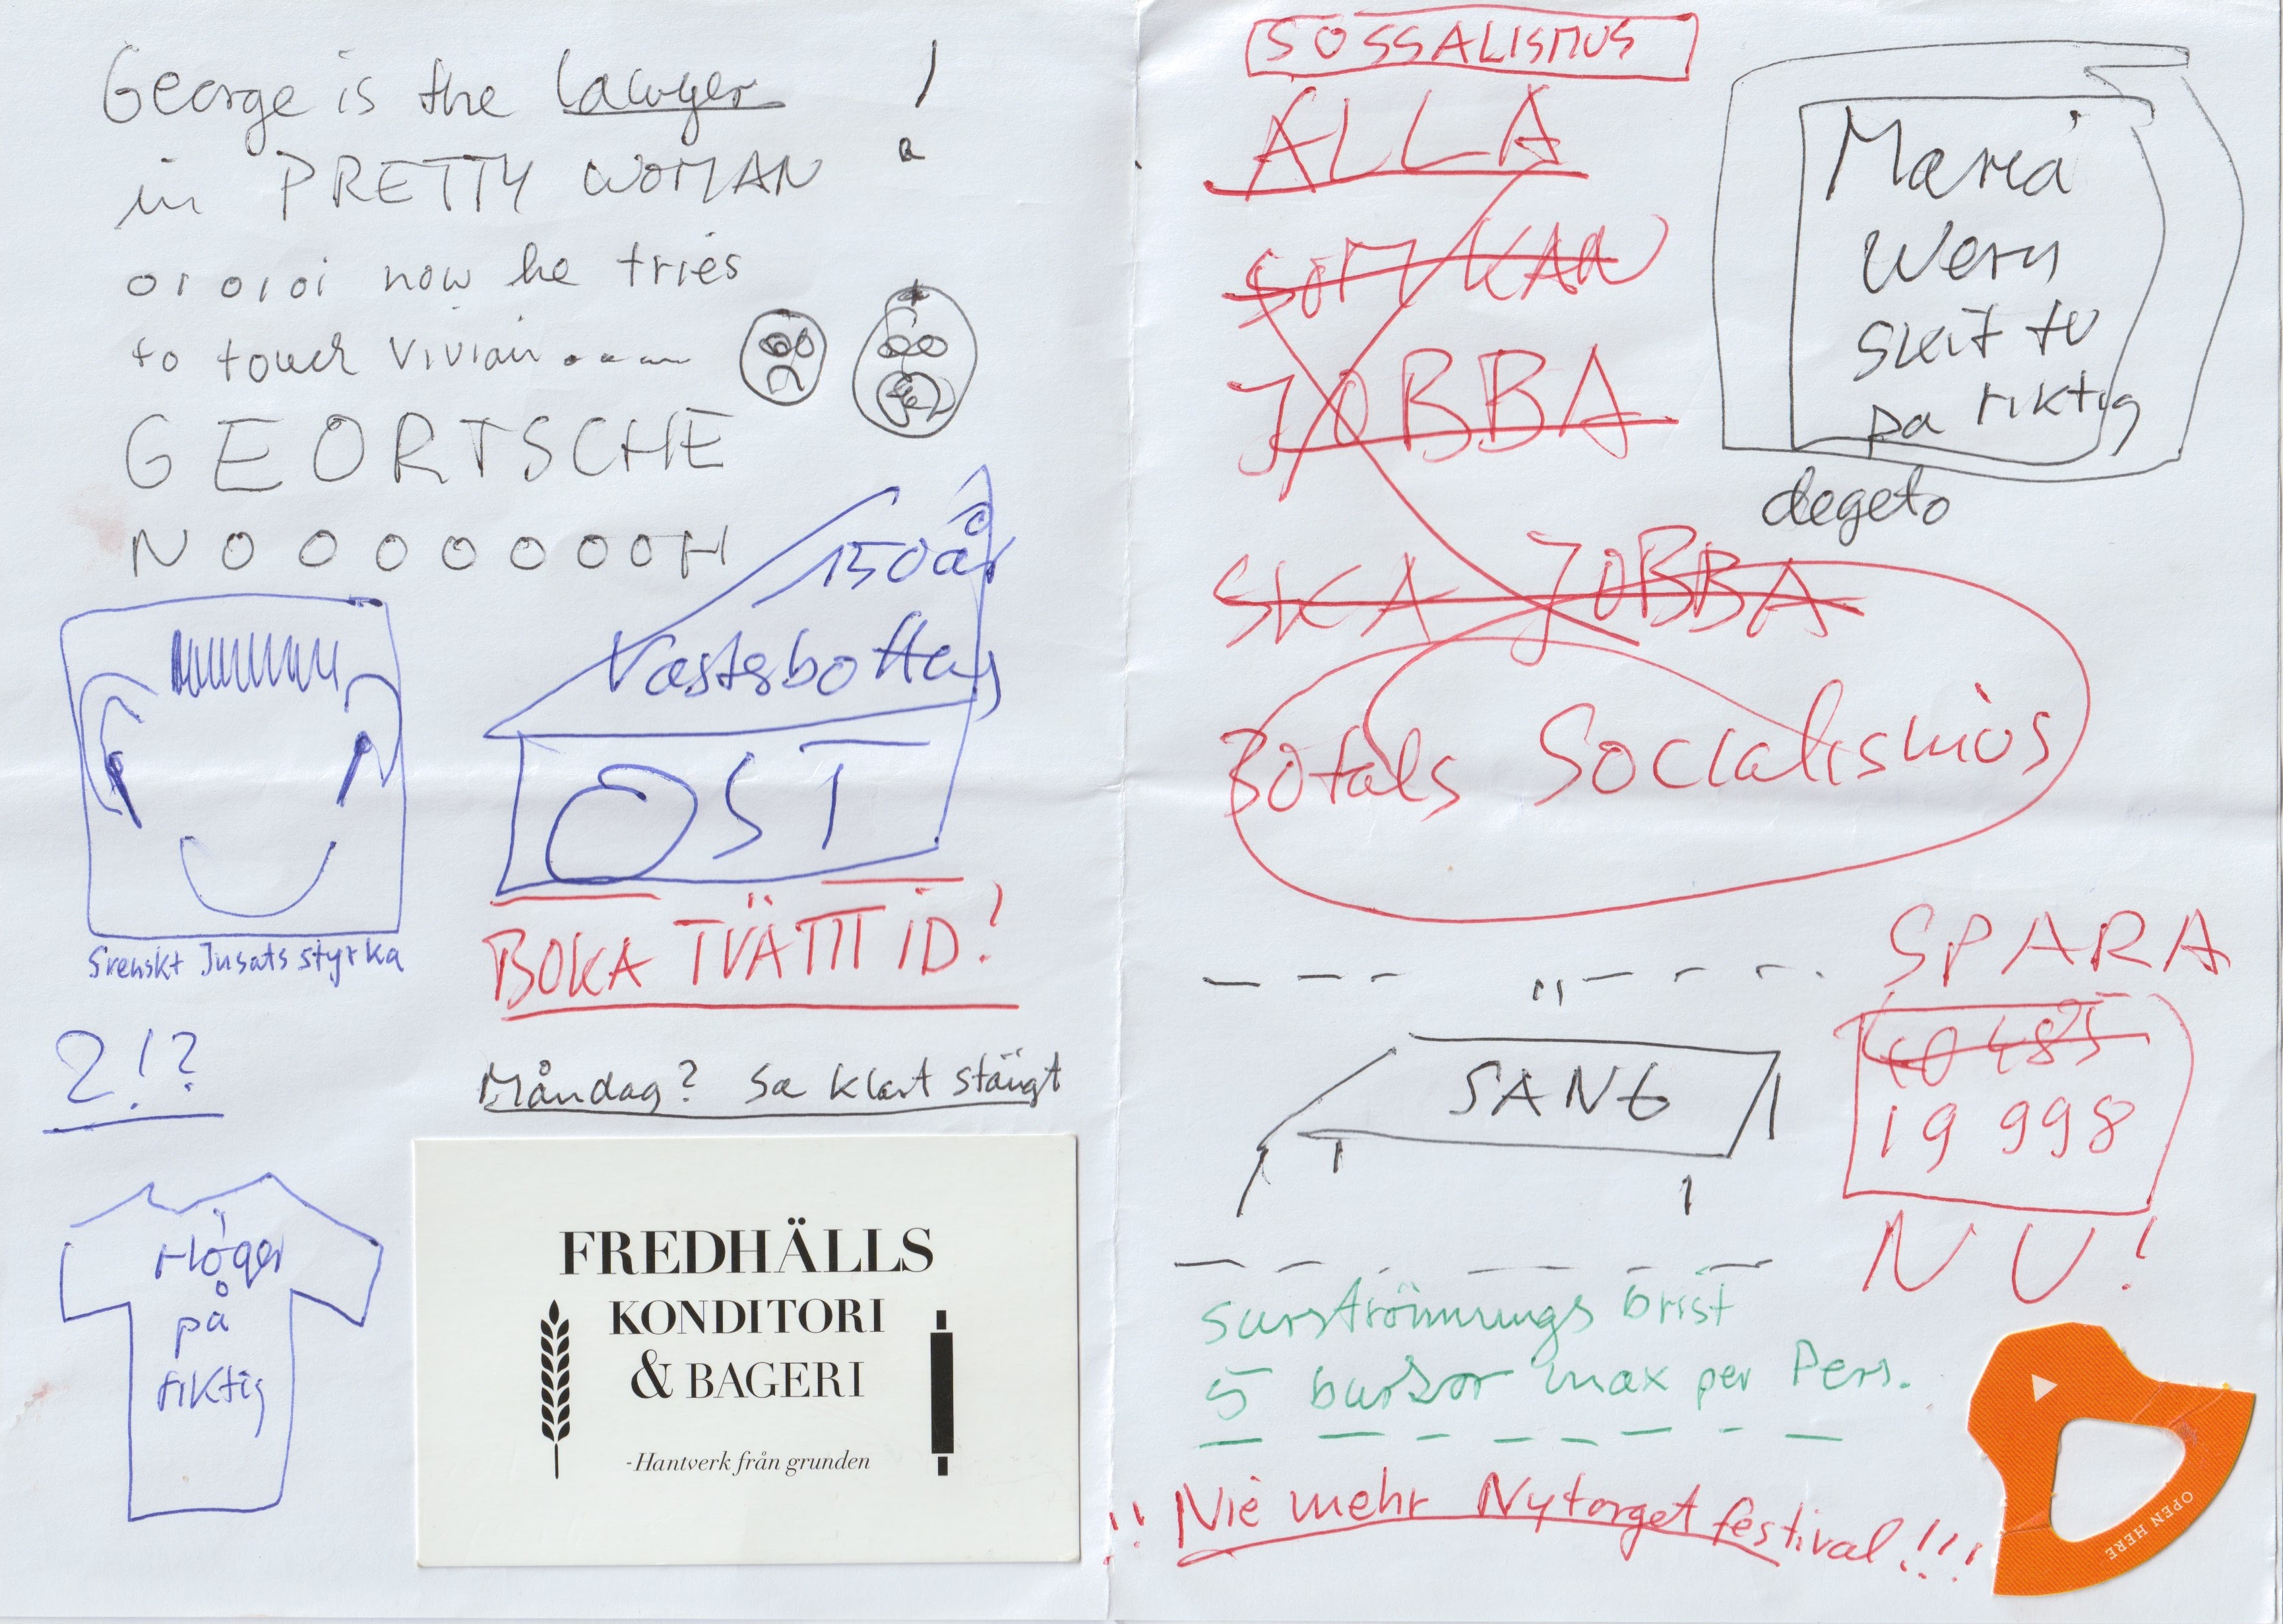 George is the lawyer !
in PRETTY WOMAN
oioioi now he tries
to touch Vivian....
GEORTSCHE
NOOOOOOOOH
150 år
Västerbottens
OST
Svenskt Insats styrka
BOKA TVÄTT TID!
2!?
Måndag? Sa klart stängt
Höger
på
riktig
FREDHÄLLS
KONDITORI
& BAGERI
-Hantverk från grunden
SOSSALISMUS
ALLA
SOM KAN
JOBBA
SKA JOBBA
Botals Socialismus
Maria
Wern
Skit tv
pa riktig
degeto
SPARA
40 485
19 998
NU!
SÄNG
surströmmings brist
5 burkar max per Pers.
!! Nie mehr Nytorget festival!!!
OPEN HERE